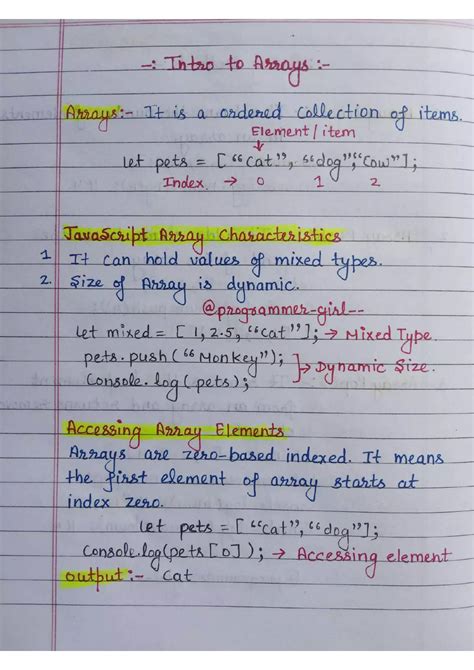 -: Intro to Arrays :-
Arrays:- It is a ordered collection of items.
Element/item
let pets = [ “Cat”, “dog”, “Cow” ];
Index → 0 1 2
JavaScript Array Characteristics
1 It can hold values of mixed types.
2. Size of Array is dynamic.
@programmer-girl--
let mixed = [ 1, 2.5, “Cat” ]; → Mixed Type.
pets.push( “Monkey” );
→ Dynamic Size.
Console.log ( pets );
Accessing Array Elements
Arrays are zero-based indexed. It means
the first element of array starts at
index zero.
let pets = [ “Cat”, “dog” ];
Console.log(pets [0] ); → Accessing element
output :- Cat